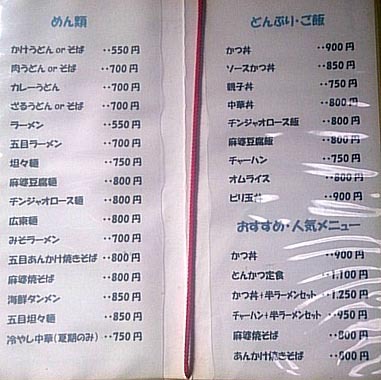 めん類
かけうどん or そば ‥550円
肉うどん or そば ‥700円
カレーうどん ‥700円
ざるうどん or そば ‥700円
ラーメン ‥550円
五目ラーメン ‥700円
坦々麺 ‥750円
麻婆豆腐麺 ‥800円
チンジャオロース麺 ‥800円
広東麺 ‥800円
みそラーメン ‥700円
五目あんかけ焼きそば ‥800円
麻婆焼そば ‥800円
海鮮タンメン ‥850円
五目坦々麺 ‥850円
冷やし中華(夏期のみ) ‥750円
どんぶり・ご飯
かつ丼 ‥900円
ソースかつ丼 ‥850円
親子丼 ‥750円
中華丼 ‥800円
チンジャオロース飯 ‥800円
麻婆豆腐飯 ‥800円
チャーハン ‥750円
オムライス ‥800円
ピリ玉丼 ‥900円
おすすめ・人気メニュー
かつ丼 ‥900円
とんかつ定食 ‥1,100円
かつ丼+半ラーメンセット ‥1,250円
チャーハン+半ラーメンセット ‥950円
麻婆焼そば ‥800円
あんかけ焼きそば ‥800円